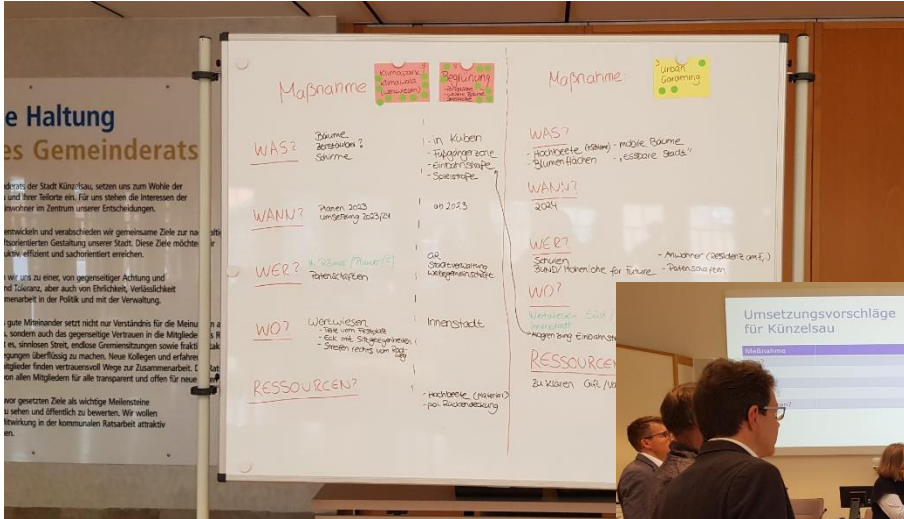 e Haltung
es Gemeinderats
nderats der Stadt Künzelsau, setzen uns zum Wohle der
und ihrer Teilorte ein. Für uns stehen die Interessen der
inwohner im Zentrum unserer Entscheidungen.
entwickeln und verabschieden wir gemeinsame Ziele zur
ftsorientierten Gestaltung unserer Stadt. Diese Ziele möchten
uktiv, effizient und sachorientiert erreichen.
wir uns zu einer, von gegenseitiger Achtung und
nd Toleranz, aber auch von Ehrlichkeit, Verlässlichkeit
mmenarbeit in der Politik und mit der Verwaltung.
gute Miteinander setzt nicht nur Verständnis für die
, sondern auch das gegenseitige Vertrauen in die Mitglieder
es, sinnlosen Streit, endlose Grenzsetzungen sowie
egungen überflüssig zu machen. Neue Kollegen und
itglieder finden vertrauensvoll Wege zur Zusammenarbeit.
on allen Mitgliedern für alle transparent und offen für neue
vor gesetzten Ziele als wichtige Meilensteine
u sehen und öffentlich zu bewerten. Wir wollen
Mitwirkung in der kommunalen Ratsarbeit attraktiv
en.
Maßnahme
Klimapark
Klimawald
(Wertwiesen)
Begrünung
WAS?
Bäume
Zerstäuber?
Schirme
- in Kübeln
- Fußgängerzone
- Einbahnstraße
- Spielstraße
WANN?
Planen 2023
Umsetzung 2023/24
ab 2023
WER?
Patenschaften
GR
Stadtverwaltung
Werbegemeinschaft
WO?
Wertwiesen
- Teile vom Festplatz
- Eck mit Sitzgelegenheiten
- Streifen rechts vom Rad-
weg
Innenstadt
RESSOURCEN?
- Hochbeete (Material)
- pol. Rückendeckung
Maßnahme:
Urban
Gardening
WAS?
- Hochbeete - mobile Bäume
- Blumenflächen - "essbare Stadt"
WANN?
2024
WER?
Schulen - Anwohner
BUND/Hohenlohe for Future - Patenschaften
WO?
Wertwiesen Süd /
Innenstadt
RESSOURCEN
Zu klären
Umsetzungsvorschläge
für Künzelsau
Maßnahme